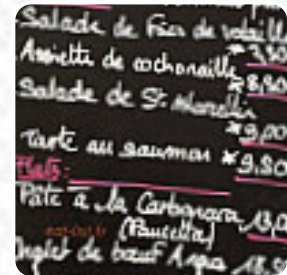 Salade de Foies de volaille
* 7,50
Assiette de cochonaille
* 8,50
Salade de St Marcellin
* 9,00
Tarte au saumon * 9,50
Plats:
Pâte à la Carbonara 13,0
(Pancetta)
Onglet de bœuf Angus 18,50